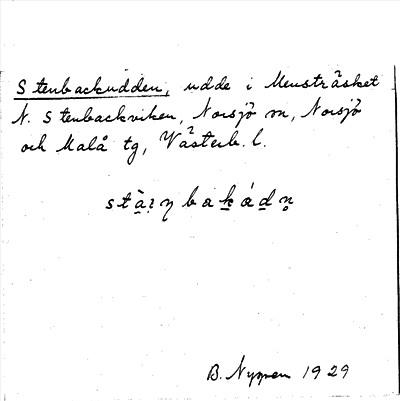 Stenbackudden, udde i Mensträsket
N. Stenbackviken, Norsjö sn, Norsjö
och Malå tg, Västerb. l.
B. Nyman 1929